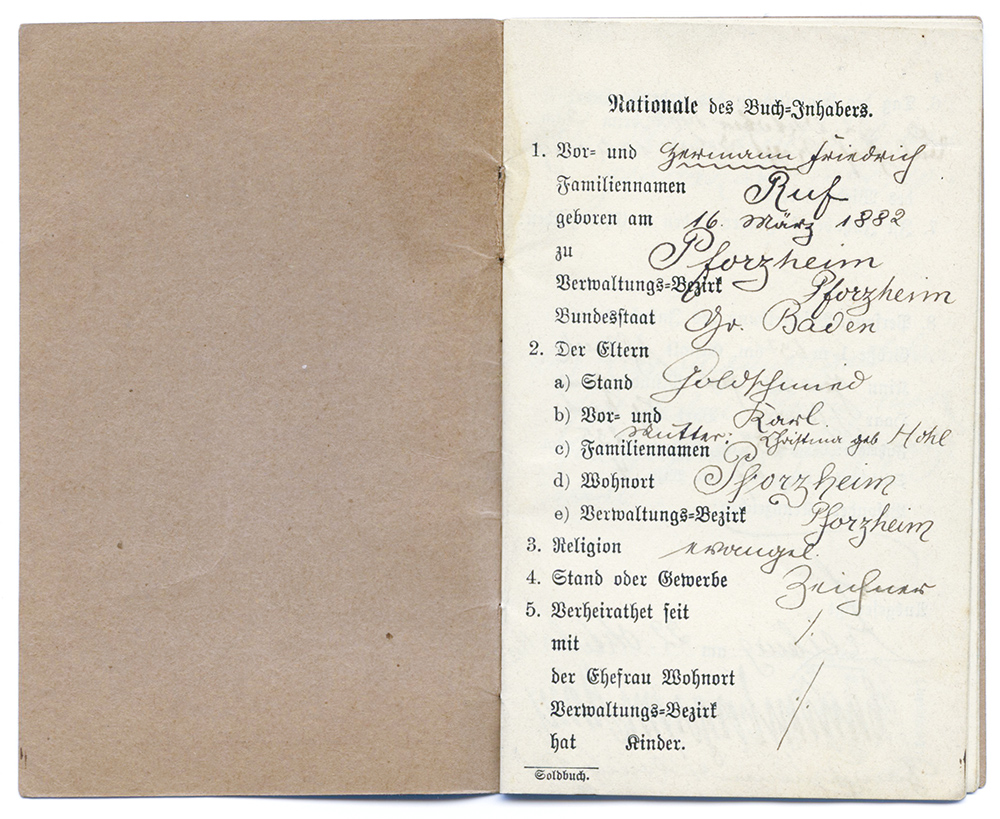 Nationale des Buch-Inhabers.
1. Vor- und Hermann Friedrich
Familiennamen Ruf
geboren am 16. März 1882
zu Pforzheim
Verwaltungs-Bezirk Pforzheim
Bundesstaat Gr. Baden
2. Der Eltern
a) Stand Goldschmied
b) Vor- und Karl
Mutter: Christina geb
c) Familiennamen
d) Wohnort Pforzheim
e) Verwaltungs-Bezirk Pforzheim
3. Religion evangel.
4. Stand oder Gewerbe Zeichner
5. Verheirathet seit
mit
der Ehefrau Wohnort
Verwaltungs-Bezirk
hat Kinder.
Soldbuch.